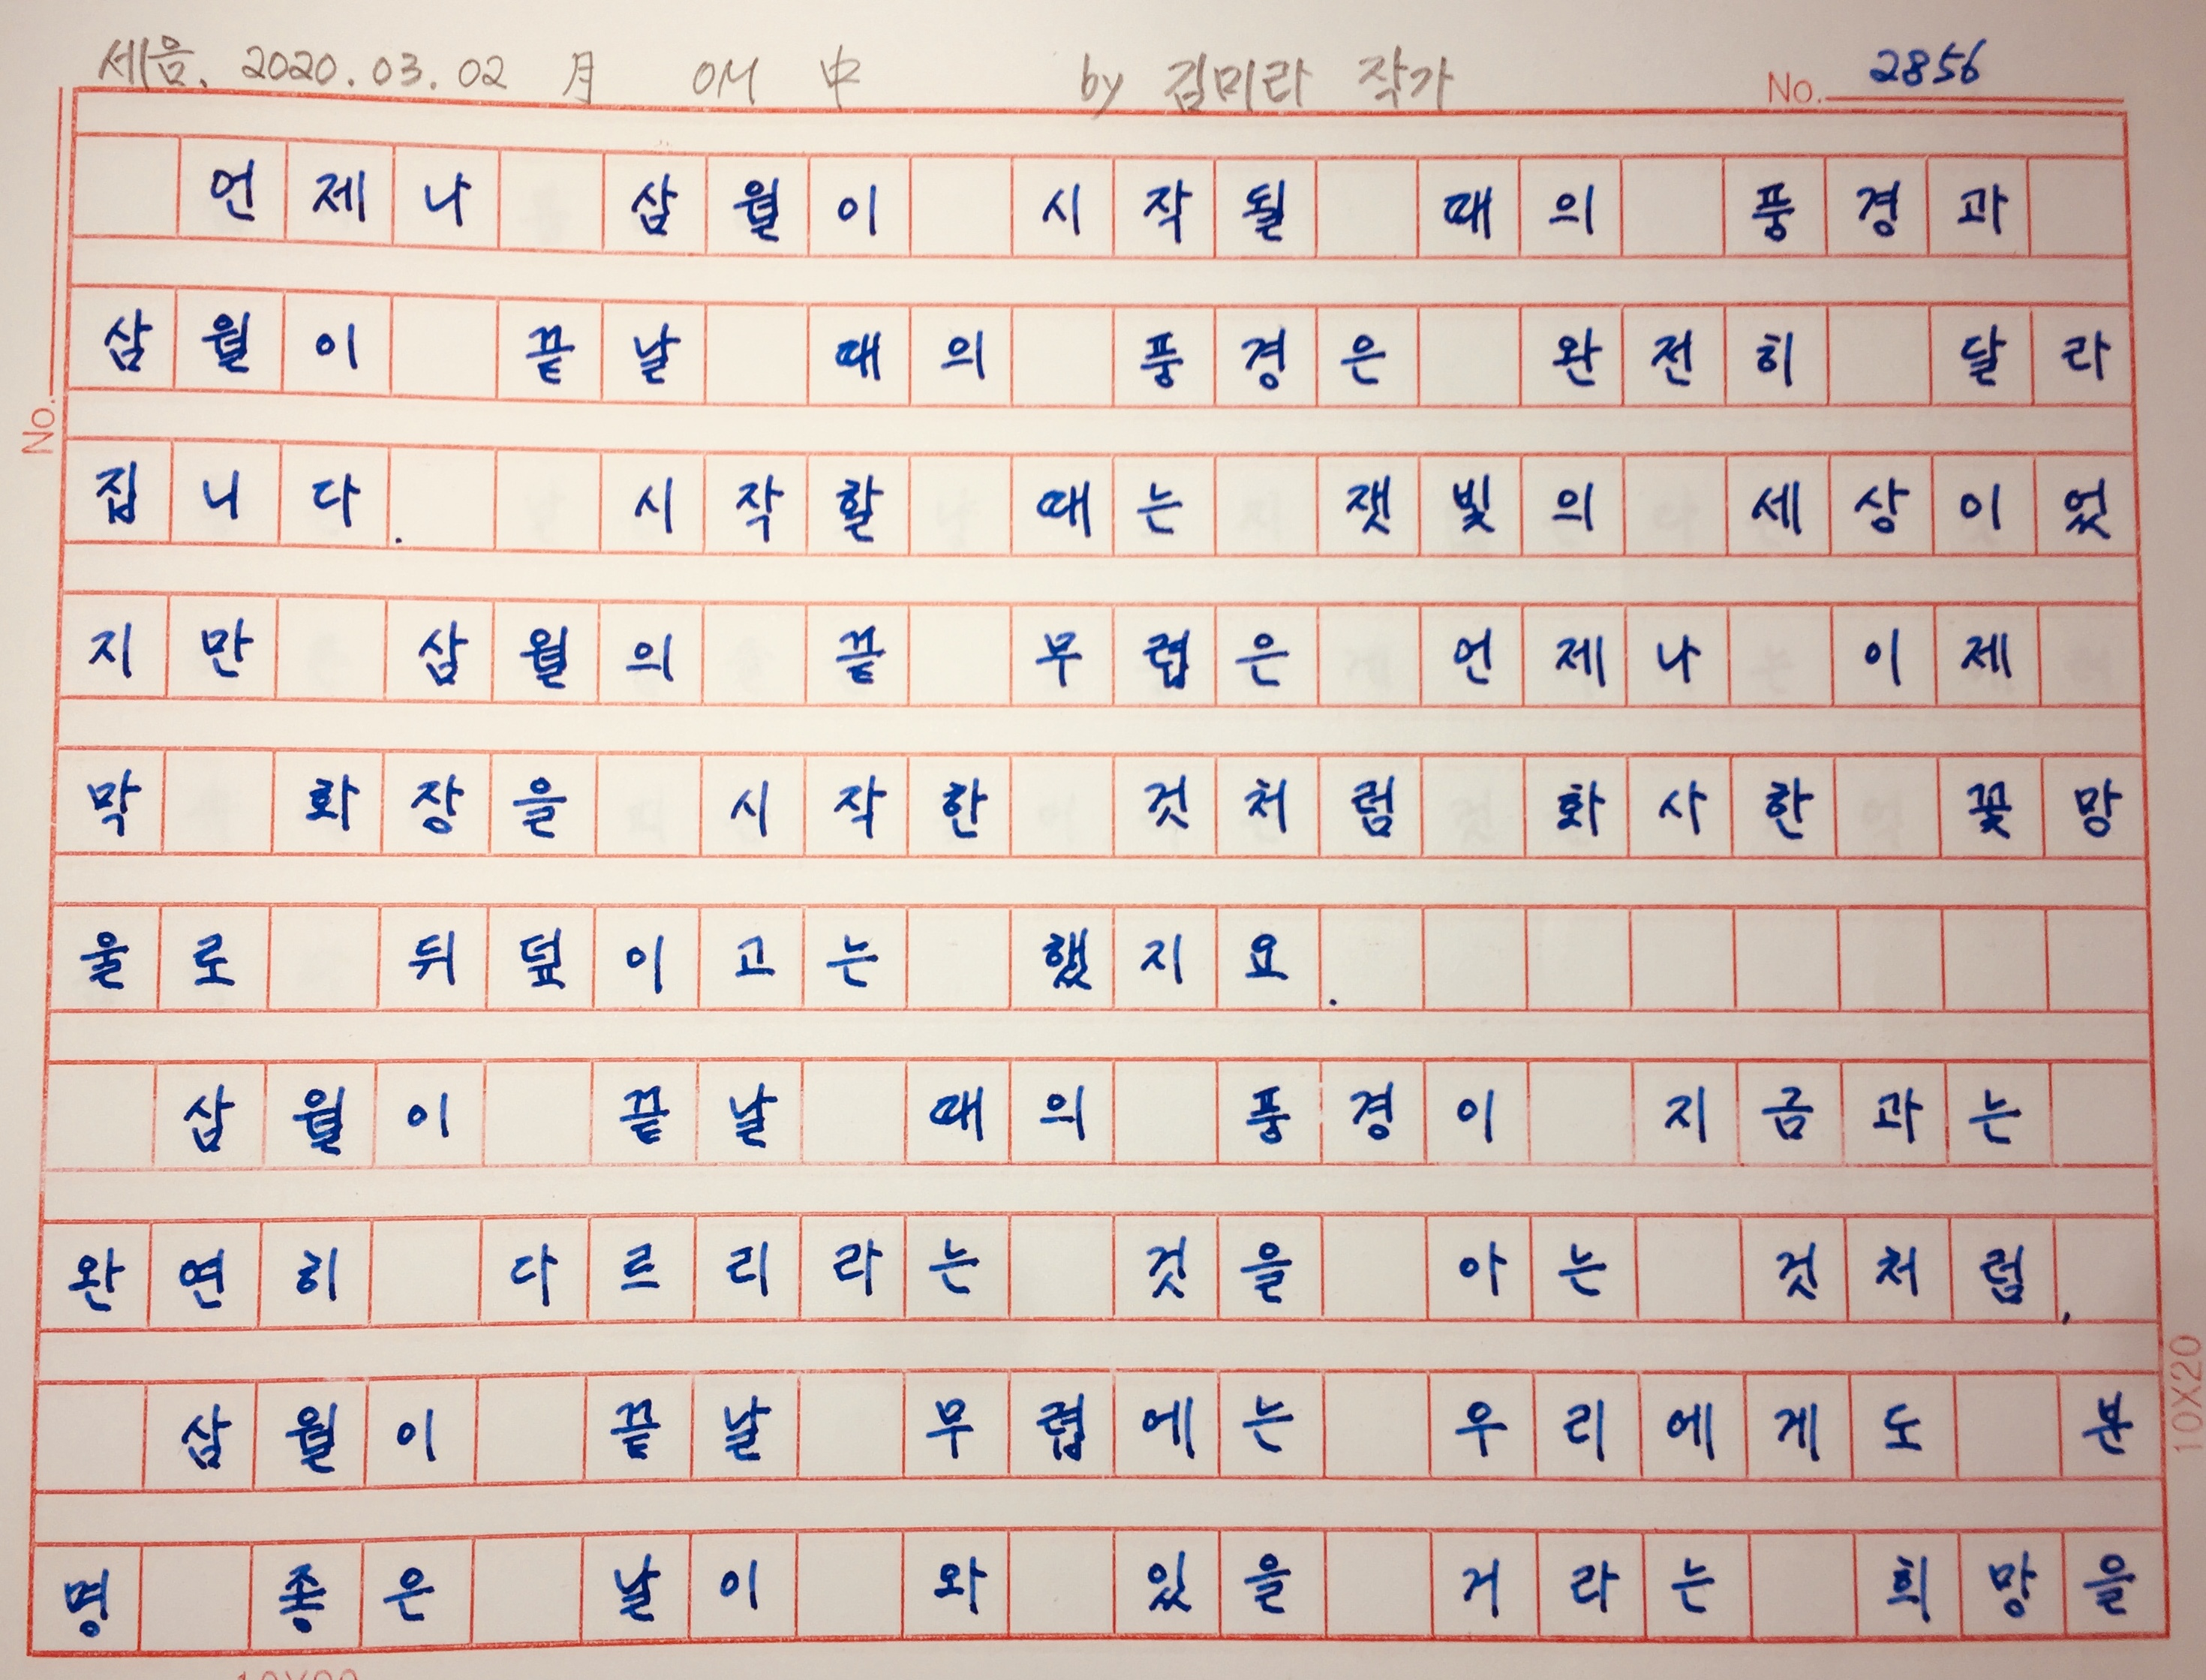 세음. 2020.03.02 月 OM 中 by 김미라 작가
No. 2856
언제나 삼월이 시작될 때의 풍경과
삼월이 끝날 때의 풍경은 완전히 달라
집니다. 시작할 때는 잿빛의 세상이었
지만 삼월의 끝 무렵은 언제나 이제
막 화장을 시작한 것처럼 화사한 꽃망
울로 뒤덮이고는 했지요.
삼월이 끝날 때의 풍경이 지금과는
완연히 다르리라는 것을 아는 것처럼,
삼월이 끝날 무렵에는 우리에게도 분
명 좋은 날이 와 있을 거라는 희망을
No.
10X20
10X20